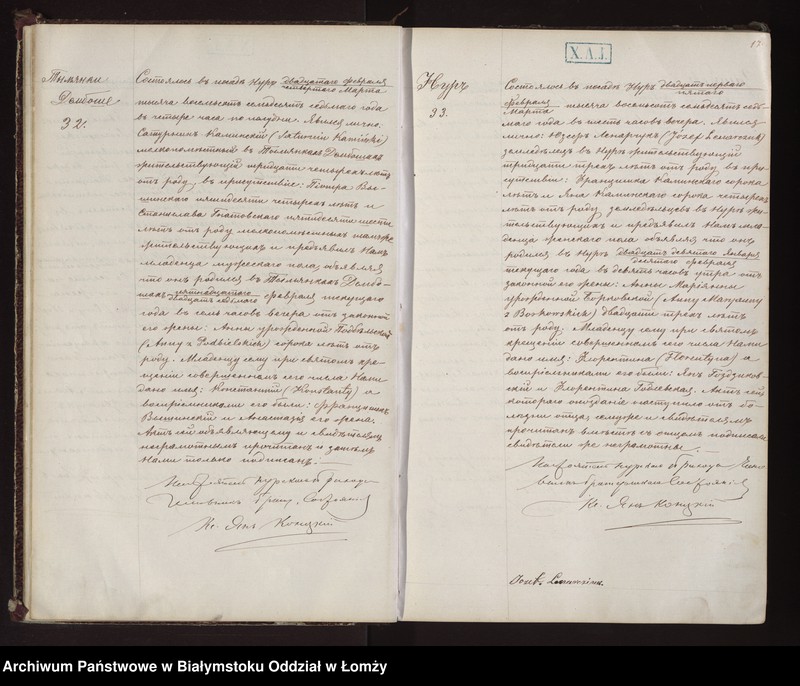 Тымянки
Дембоше
32.
Состоялось въ посадѣ Нурѣ двадцатаго февраля
четвертаго Марта
тысяча восемьсотъ семдесятъ седьмаго года
въ четыре часа по полудни. Явился лично:
Сатурнинъ Каминскій (Saturnin Kamiński)
мелкопомѣстный въ Тымянкахъ Дембошахъ
жительствующій тридцати четырехъ лѣтъ
отъ роду, въ присутствіи: Піотра
пятидесяти четырехъ лѣтъ и
Станислава пятидесяти шести
лѣтъ отъ роду мелкопомѣстныхъ тамъ же
жительствующихъ и предъявилъ Намъ
младенца мужескаго пола, объявляя
что онъ родился въ Тымянкахъ Дембо-
шахъ пятнадцатаго февраля текущаго
двадцать седьмаго
года въ семь часовъ вечера отъ законной
его жены: Анны урожденной
(Anny z) сорока лѣтъ отъ
роду. Младенцу сему при святомъ кре-
щеніи совершенномъ сего числа Нами
дано имя: Константій (Konstanty) а
воспріемниками его были: Францишекъ
и Анастазія его жена.
Актъ сей объявляющему и свидѣтелямъ
неграмотнымъ прочитанъ и затѣмъ
Нами только подписанъ.
Настоятель Нурскаго Прихода
Чиновникъ Гражд. Состоянія
Кс. Янъ
X.A.I.
17
Нуръ
33.
Состоялось въ посадѣ Нурѣ двадцать перваго
пятаго
февраля
Марта тысяча восемьсотъ семдесятъ седь-
маго года въ шесть часовъ вечера. Явился
лично: Юзефъ (Józef)
земледѣлецъ въ Нурѣ жительствующій
тридцати трехъ лѣтъ отъ роду въ при-
сутствіи: Францишка Каминскаго сорока
лѣтъ и Яна Каминскаго сорока четырехъ
лѣтъ отъ роду земледѣльцевъ въ Нурѣ жи-
тельствующихъ и предъявилъ Намъ мла-
денца женскаго пола объявляя что онъ
родился въ Нурѣ двадцать девятаго Января
десятаго февраля
текущаго года въ девять часовъ утра отъ
законной его жены: Анны Маріанны
урожденной Борковской (Anny Maryanny
z Borkowskich) двадцати трехъ лѣтъ
отъ роду. Младенцу сему при святомъ
крещеніи совершенномъ сего числа Нами
дано имя: Флорентина (Florentyna) а
воспріемниками его были: Янъ
и Флорентина. Актъ сей
котораго опозданіе наступило отъ бо-
лѣзни отца, сему же и свидѣтелямъ
прочитанъ вмѣстѣ съ отцомъ подписанъ
свидѣтели же неграмотны.
Настоятель Нурскаго Прихода Чино-
вникъ Гражданскаго Состоянія
Кс. Янъ
Józef
Archiwum Państwowe w Białymstoku Oddział w Łomży